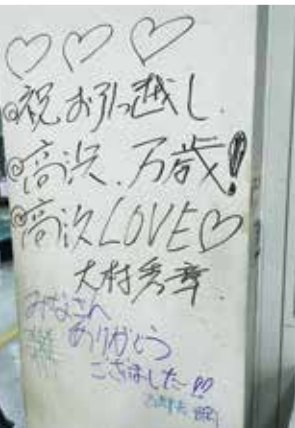 ♡♡♡
◎祝お引っ越し.
◎高浜.万歳!
◎高浜LOVE♡
大村秀章.
みなさん
ありがとう
ございました~!!